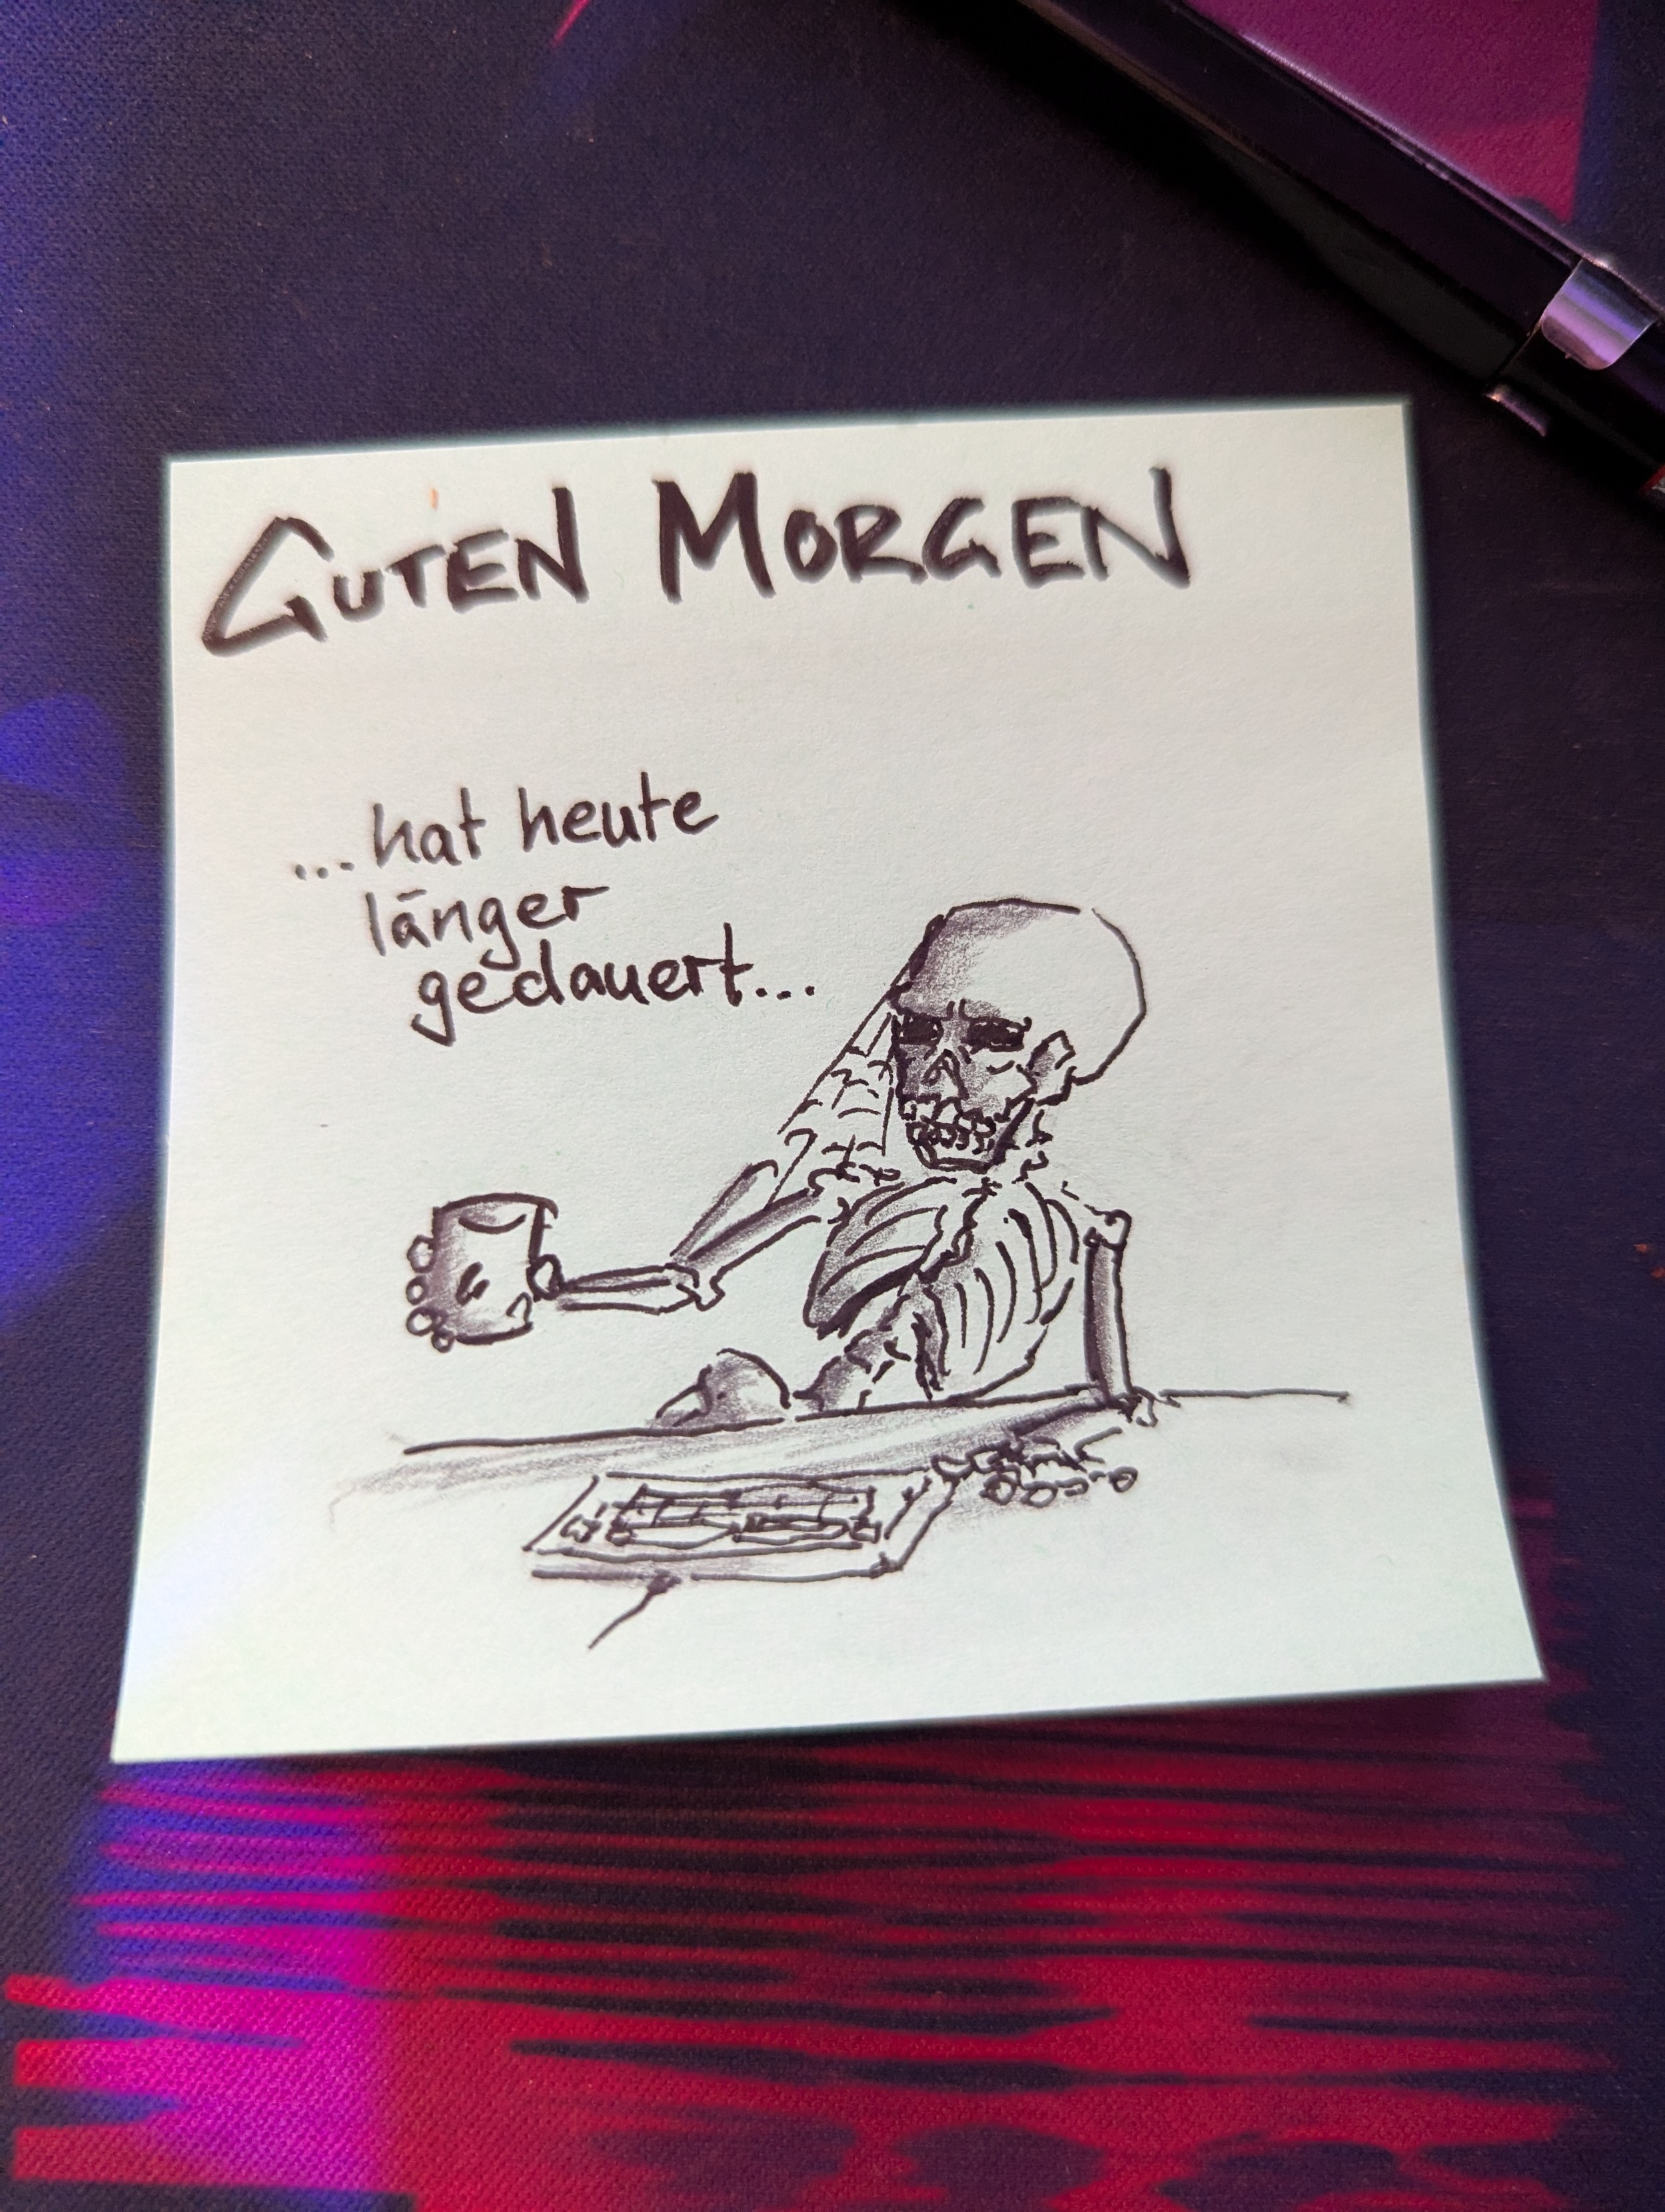 GUTEN MORGEN
...hat heute
länger
gedauert...